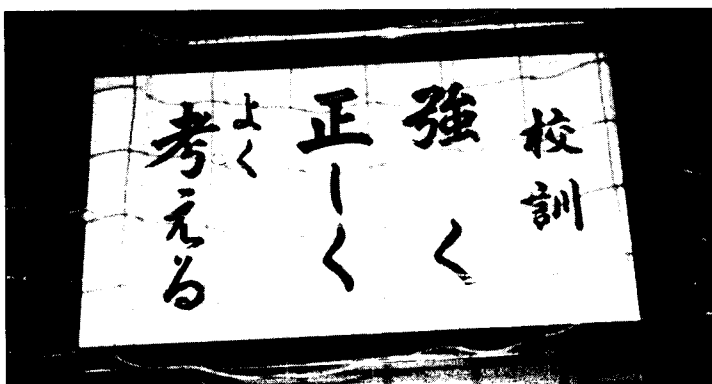 校訓
強く
正しく
よく
考える